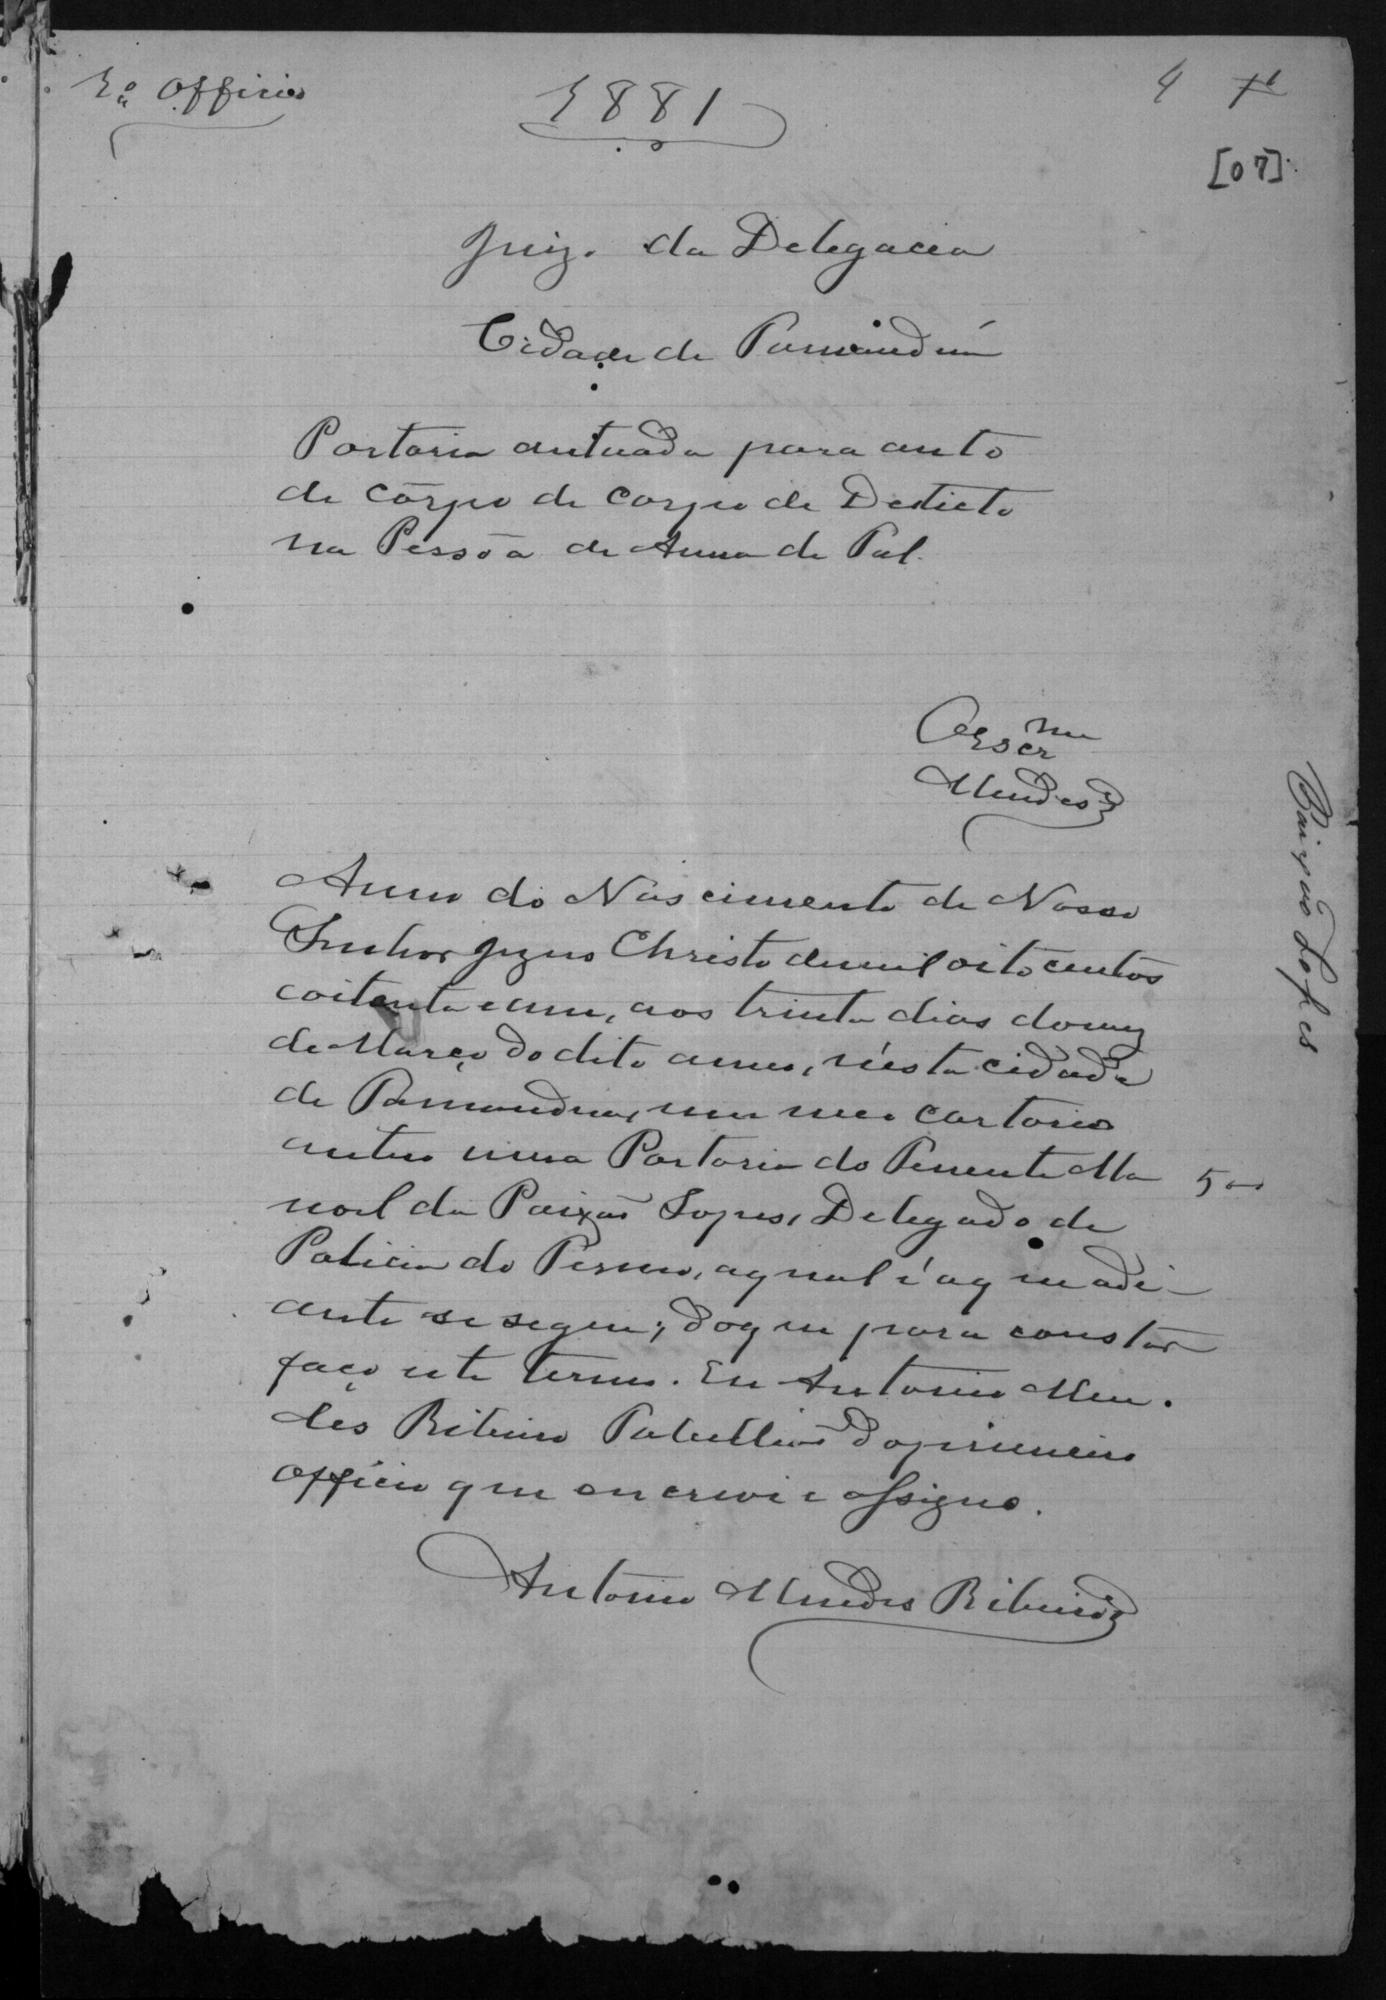 1º Officio
1881
4
[07]
Juizo da Delegacia
Cidade de Parnanduá
Portaria autuada para auto
de Corpo de Corpo de Delicto
na Pessôa de Anna de Tal.
O Escrm
Mendes
Anno do Nascimento de Nosso
Senhor Jezus Christo de mil oito centos
e oitenta e um, aos trinta dias do mez
de Março do dito anno, n'esta cidade
de Parnandua, em meo cartorio
autuo uma Portaria do Tenente Ma
noel da Paixaõ Lopes, Delegado de
Policia do Termo, a qual é a que adi-
ante se segue; do que para constar
faço este termo. Eu Antonio Men.
des Ribeiro Tabelliaõ do primeiro
Officio que escrevi e assigno.
Antonio Mendes Ribeiro
Paixão Lopes